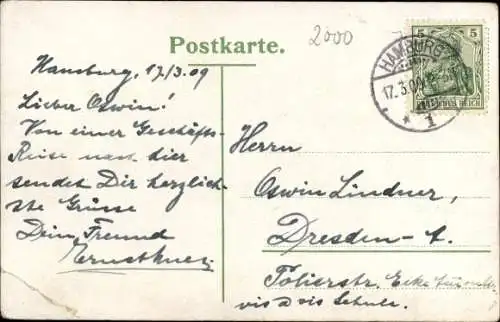 Postkarte.
2000
5 5
DEUTSCHES REICH
HAMBURG
17.3.09
* 1
Hamburg, 17/3.09
Lieber Oswin!
Von einer Geschäfts-
Reise nach hier
sendet Dir herzlich-
ste Grüsse
Dein Freund
Herrn
Oswin Lindner,
Dresden-A.
Polierstr. Ecke
vis a vis Schule.